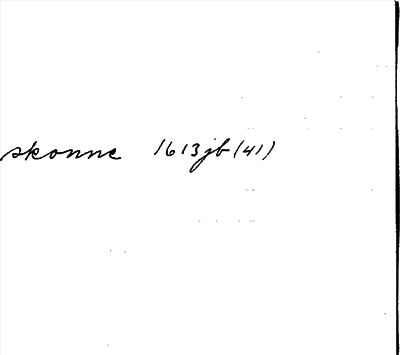 skonne 1613jb(41)